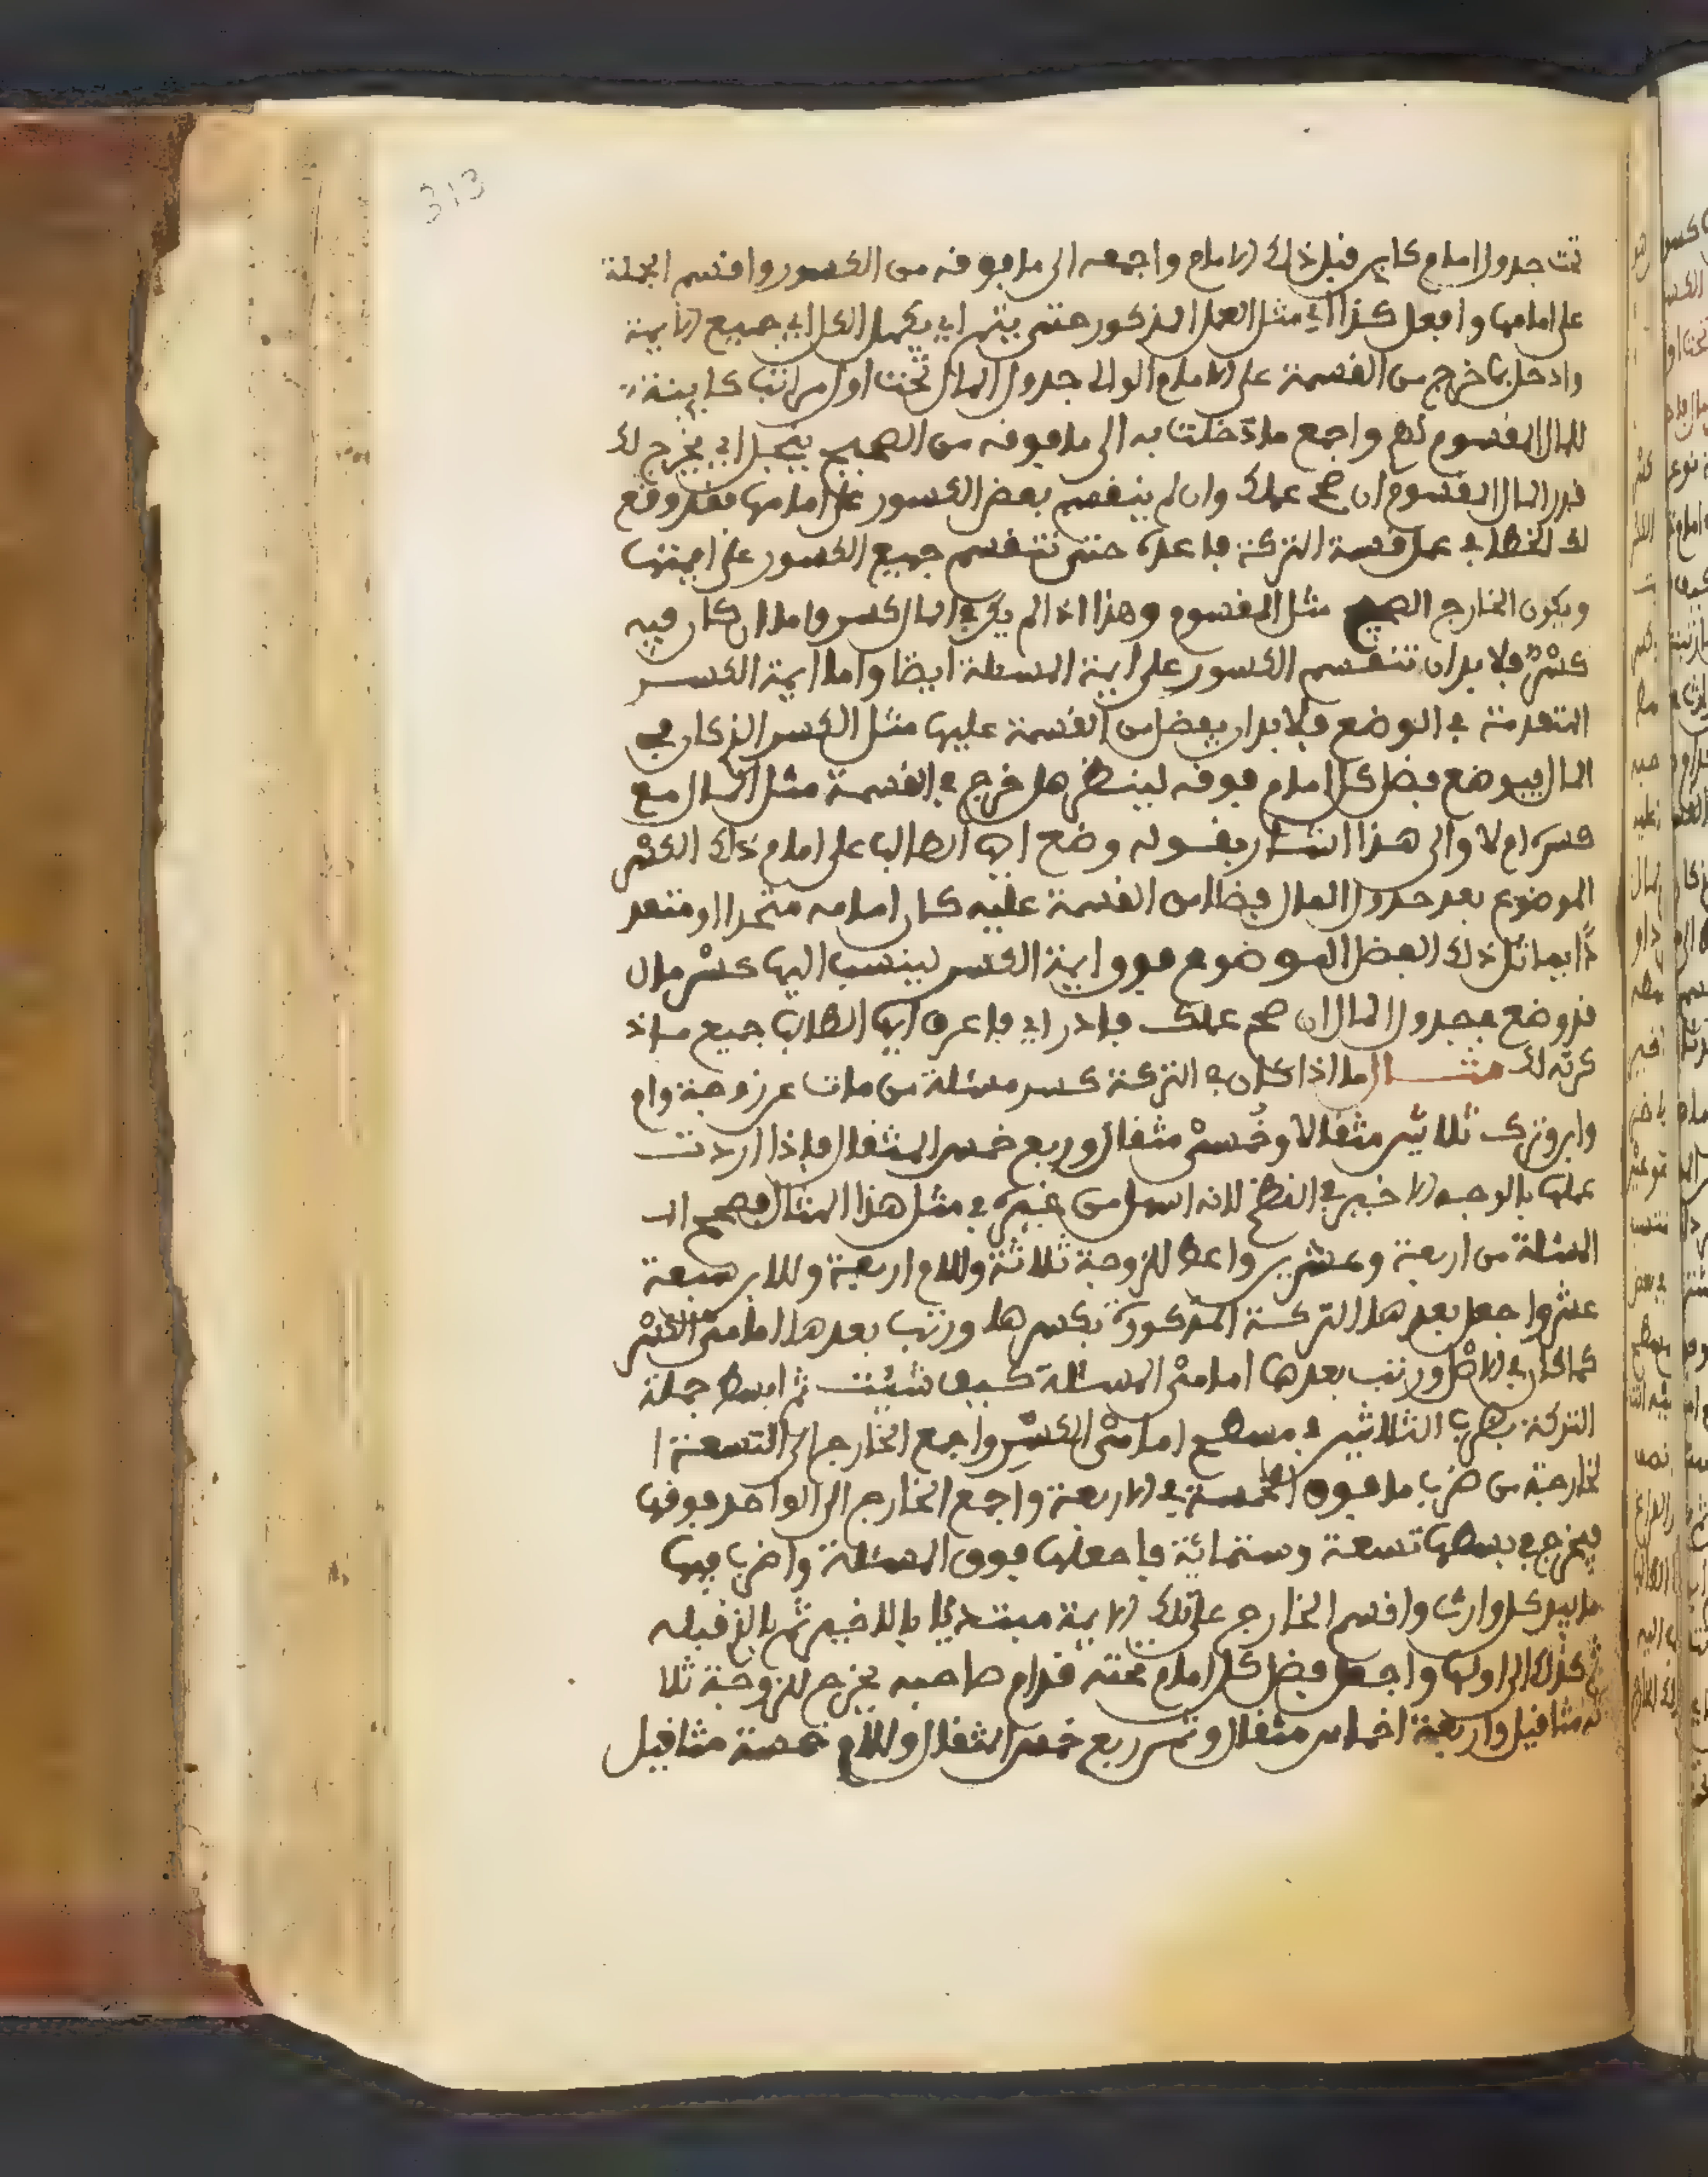 313
تحت جدول امام كاين قبل ذلك الامام واجمعه الى ما فوقه من الكسور واقسم الجملة
على امامها وافعل كذا اي مثل العمل المذكور حتى يتم اي يكمل الكل اي جميع الايمة
وادخل بما خرج من القسمة على الامام الوالي جدول المال تحت اول مراتب كاينة
للمال المقسوم ثم واجمع ما دخلت به الى ما فوقه من الصحيح ينجبل اي يخرج لك
قدر المال المقسوم ان صح عملك وان لم ينقسم بعض الكسور على امامها فقد وقع
لك الخطا في عمل قسمة التركة فاعده حتى تنقسم جميع الكسور على ايمتها
ويكون الخارج الصحيح مثل المقسوم وهذا اذا لم يكن في المال كسر واما ان كان فيه
كسر فلا بد ان تنقسم الكسور على ايمة المسئلة ايضا واما ايمة الكسر
المتقدمة في الوضع فلا بد ان يفضل من القسمة عليها مثل الكسر الذي كان في
المال فيوضع فضل كل امام فوقه لينظر هل خرج في القسمة مثل المال مع
كسره ام لا والى هذا اشار بقوله وضع ايها الطالب على امام ذلك الكسر
الموضوع بعد جدول المال فضلا من القسمة عليه كان امامه متحدا او متعد
دا يماثل ذلك الفضل الموضوع فوق ايمة الكسر لينسب اليها كسر مال
قد وضع بجدول المال ان صح عملك فادر اي فاعرف ايها الطالب جميع ما ذ
كرته لك مثال ما اذا كان في التركة كسر مسئلة من مات عن زوجة وام
وابن وترك ثلاثين مثقالا وخمسى مثقال وربع خمس المثقال فاذا اردت
عملها بالوجه الاخير في النظم لانه اسهل من غيره في مثل هذا المثال فصحح ا
المسئلة من اربعة وعشرين واعط للزوجة ثلاثة وللام اربعة وللابن سبعة
عشر واجعل بعدها التركة المذكورة بكسرها ورتب بعدها امامى الكسر
كما كان في الاصل ورتب بعدها امامى المسئلة كيف شيئت ثم ابسط جملة
التركة بضرب الثلاثين في مسطح امامى الكسر واجمع الخارج الى التسعة ا
لخارجة من ضرب ما فوق الخمسة في الاربعة واجمع الخارج الى الواحد فوقها
فيخرج في بسطها تسعة وستمائة فاجعلها فوق المسئلة واضرب فيها
ما بيد كل وارث واقسم الخارج على تلك الايمة مبتديا بالاخير ثم بالذي قبله
ثم كذلك الى اولها واجعل فضل كل امام تحته قدام صاحبه يخرج للزوجة ثلا
ثة مثاقيل واربعة اخماس مثقال وثمن ربع خمس المثقال وللام خمسة مثاقيل